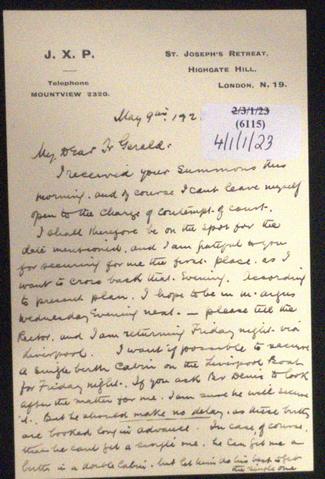 J. X. P.
Telephone
MOUNTVIEW 2320.
ST. JOSEPH'S RETREAT,
HIGHGATE HILL,
LONDON, N. 19.
May 9th, 192
2/3/1/23
(6115)
4/1/1/23
My Dear Fr Gerald:
I received your Summons this
morning, and of course I can't leave myself
open to the Charge of contempt of court.
I shall therefore be on the spot for the
date mentioned, and I am grateful to you
for securing for me the first place, as I
want to cross back that Evening. According
to present plan, I hope to be in Mt. Argus
Wednesday Evening next — please tell the
Rector, and I am returning Friday night via
Liverpool. I want if possible to secure
a Single berth Cabin on the Liverpool Boat
for Friday night. If you ask Bro Denis to look
after the matter for me, I am sure he will secure
it. But he should make no delay, as these berths
are booked long in advance. In case of course,
that he can't get a single one, he can get me a
berth in a double Cabin, but let him do his best to get
the single one